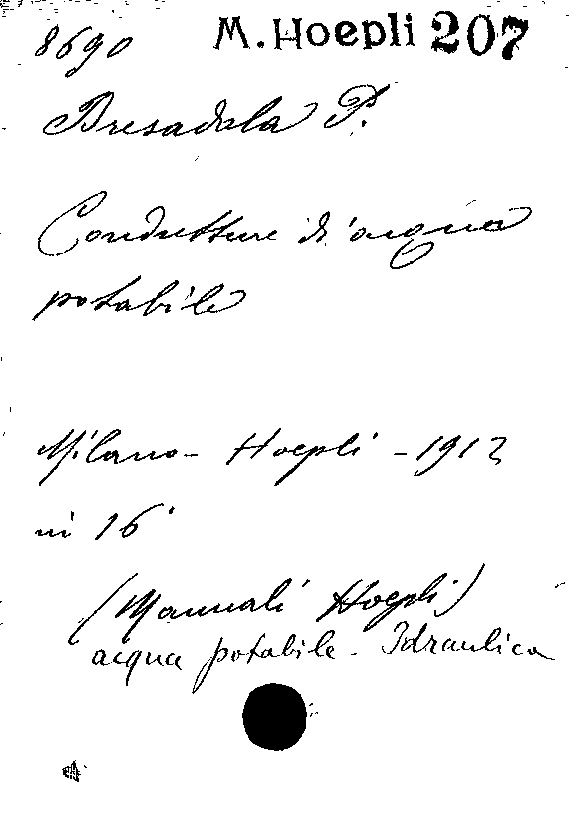 8690 M. Hoepli 207
Bresadola P.
Condutture d'acqua
potabile
Milano - Hoepli - 1912
in 16°
(Manuali Hoepli)
acqua potabile - Idraulica